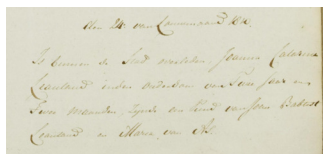 den 24 van Louwmaand 1811.
Is binnen de Stad overleden Joanna Catarina
in den ouderdom van Twee Jaar en
Twee maanden, zijnde een Kind van Joan Babtist
en Maria van